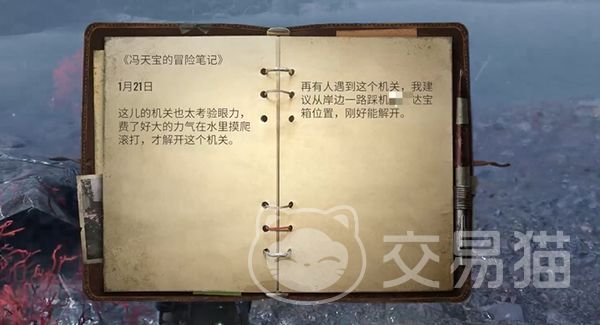 《冯天宝的冒险笔记》
1月21日
这儿的机关也太考验眼力，
费了好大的力气在水里摸爬
滚打，才解开这个机关。
再有人遇到这个机关，我建
议从岸边一路踩机 达宝
箱位置，刚好能解开。
交易猫